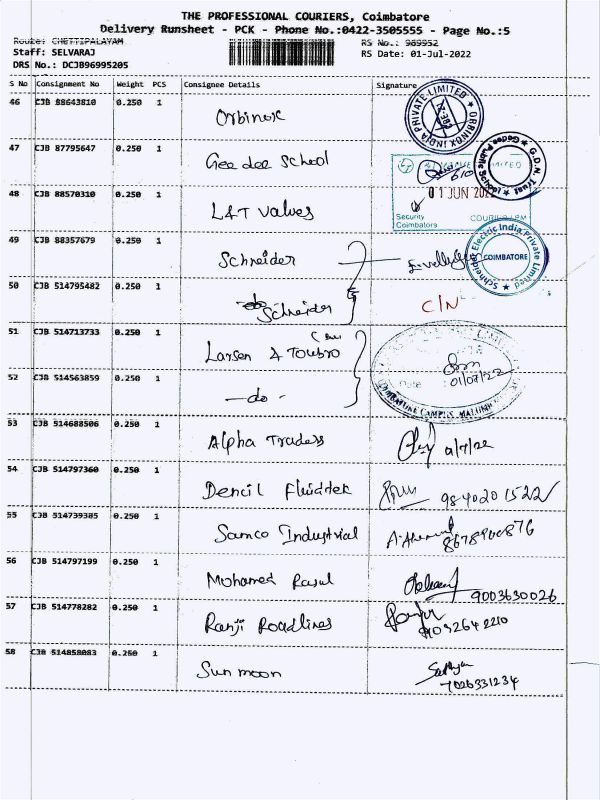 THE PROFESSIONAL COURIERS, Coimbatore
Delivery Runsheet - PCK - Phone No.:0422-3505555 - Page No.:5
Route: CHETTIPALAYAM RS No.: 989952
Staff: SELVARAJ RS Date: 01-Jul-2022
DRS No.: DCJB96995205
S No Consignment No Weight PCS Consignee Details Signature
46 CJB 88643810 0.250 1 Orbinox
ORBINOX INDIA PRIVATE LIMITED
47 CJB 87795647 0.250 1 Gee dee School
G.D.N. Trust
Public School
48 CJB 88570310 0.250 1 L&T Valves
01 JUN 202
Security
Coimbatore
49 CJB 88357679 0.250 1 Schneider
Schneider Electric India Private Limited
COIMBATORE
50 CJB 514795482 0.250 1 Schneider C/N
51 CJB 514713733 0.250 1 Larsen & Toubro
Date : 01/07/22
COIMBATORE CAMPUS,
52 CJB 514563859 0.250 1 -do-
53 CJB 514688506 0.250 1 Alpha Traders 1/7/22
54 CJB 514797360 0.250 1 Dencil Fluidtek 9840201522
55 CJB 514739385 0.250 1 Samco Industrial 8678900876
56 CJB 514797199 0.250 1 Mohamed Rasul 9003630026
57 CJB 514778282 0.250 1 Ranji Roadlines
58 CJB 514858083 0.250 1 Sun moon Sathya
7026331234